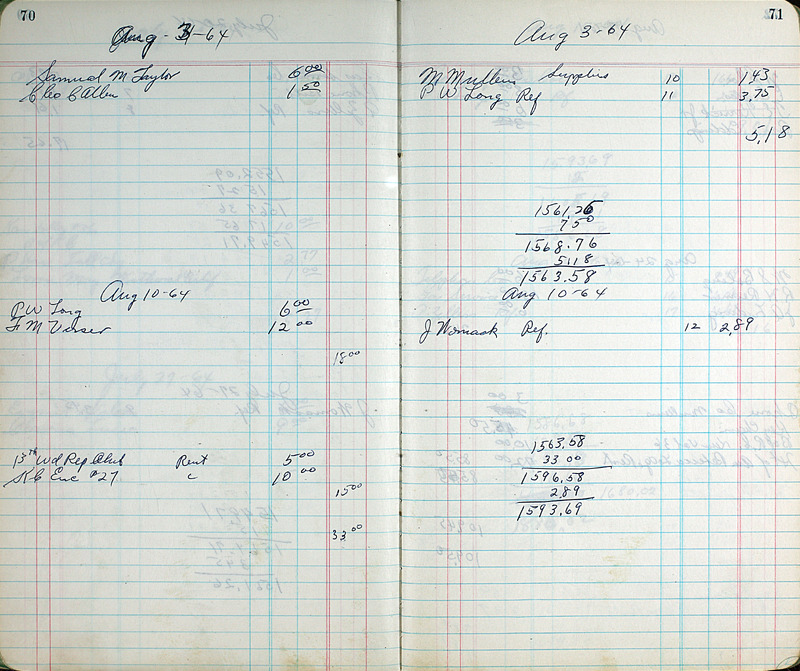 70
Aug - 3-64
Samuel M Taylor 6.00
Cleo C Allen 1.50
Aug 10-64
P W Long 6.00
F M Verser 12.00
18.00
13th Wd Rep Club Rent 5.00
K C Enc #27 " 10.00
15.00
33.00
71
Aug 3-64
M Mullens Supplies 10 1.43
P W Long Ref 11 3.75
5.18
1561.26
7.50
1568.76
5.18
1563.58
Aug 10-64
J Womack Ref. 12 2.89
1563.58
33 00
1596.58
2.89
1593.69